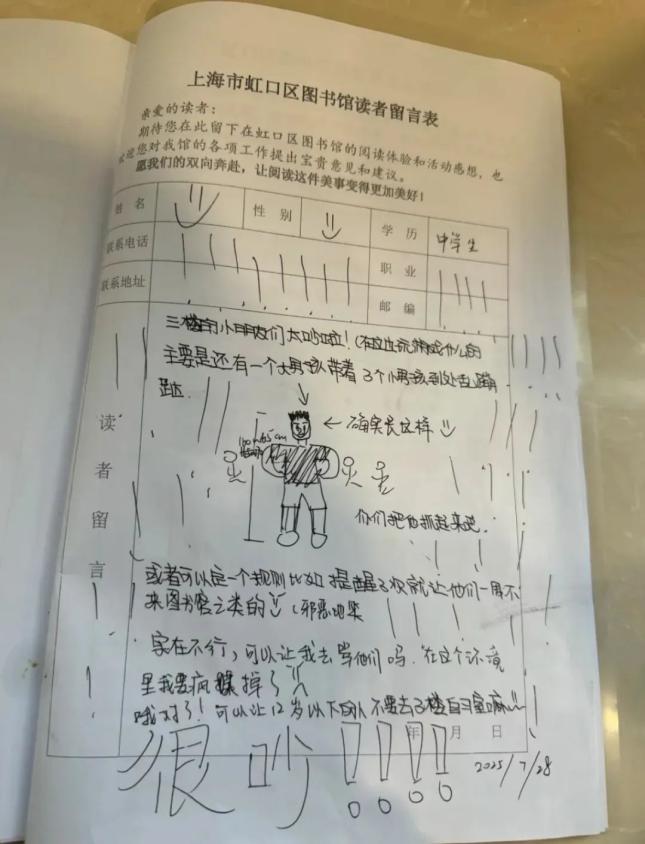 上海市虹口区图书馆读者留言表
亲爱的读者：
期待您在此留下在虹口区图书馆的阅读体验和活动感想，也
欢迎您对我馆的各项工作提出宝贵意见和建议。
愿我们的双向奔赴，让阅读这件美事变得更加美好！
姓 名
性 别
学 历 中学生
联系电话
职 业
联系地址
邮 编
读者留言
三楼的小朋友们太吵啦！(在这边玩游戏什么的
主要是还有一个大男孩带着3个小男孩到处乱蹦
跶
←确实长这样
你们把他抓起来吧.
或者可以定一个规则比如提醒3次就让他们一周不
来图书馆之类的 (邪恶地笑
实在不行，可以让我去骂他们吗. 在这个环境
里我要疯掉了
哦对了！可以让12岁以下的人不要去3楼自习室嘛
年 月 日
很吵！！！！
2025/7/28